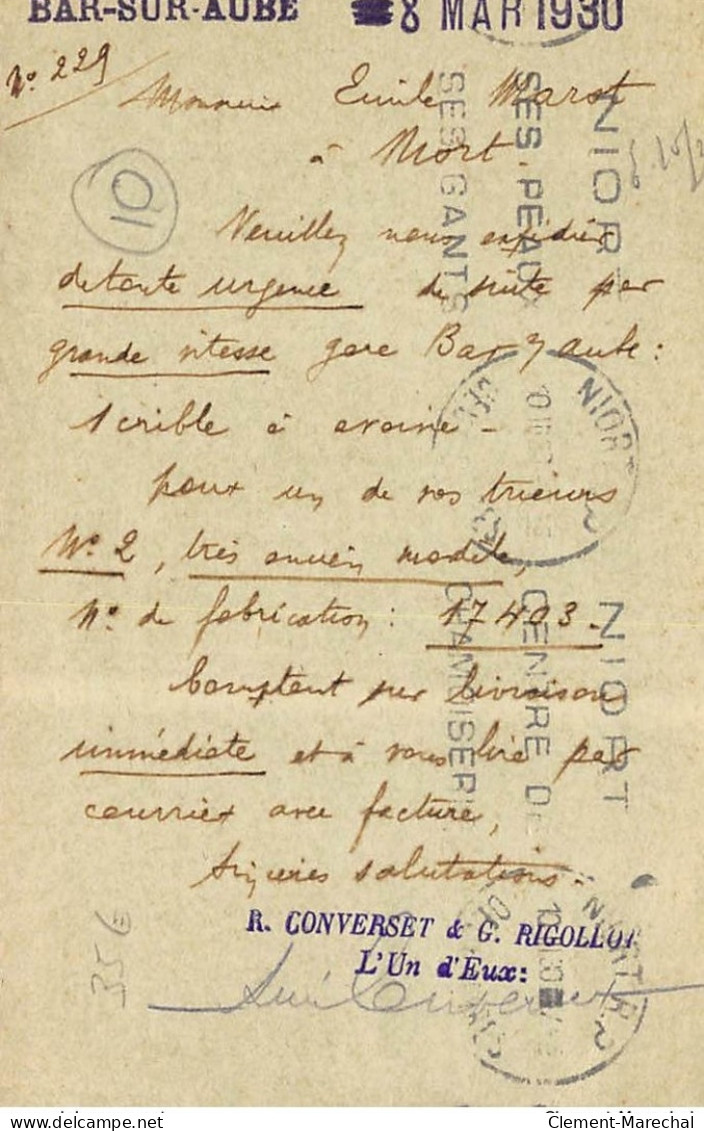 BAR-SUR-AUBE 8 MAR 1930
N° 229
Monsieur Emile Marot
à Niort.
01
Veuillez nous expédier
de toute urgence de suite par
grande vitesse gare Bar s/ aube :
1 crible à avoine -
pour un de vos trieurs
N° 2, très ancien modèle,
N° de fabrication : 17403.
Comptant sur livraison
immédiate et à vous lire par
courrier avec facture,
Sincères salutations.
R. CONVERSET & G. RIGOLLOT
L'Un d'Eux:
35€
NIORT
SES PEAUX
SES GANTS
NIORT
NIORT
CENTRE DE
CHAMOISERIE
NIORT
delcampe.net
Clement-Marechal